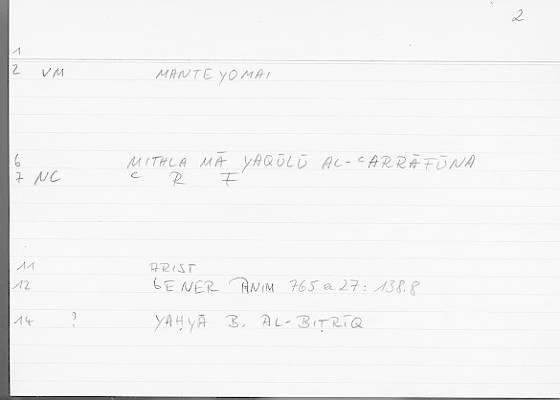 2
1
2 VM MANTEYOMAI
6 MITHLA MĀ YAQŪLŪ AL-ʿARRĀFŪNA
7 NC C R F
11 ARIST
12 GENER ANIM 765 a 27: 138.8
14 ? YAḤYĀ B. AL-BIṬRĪQ